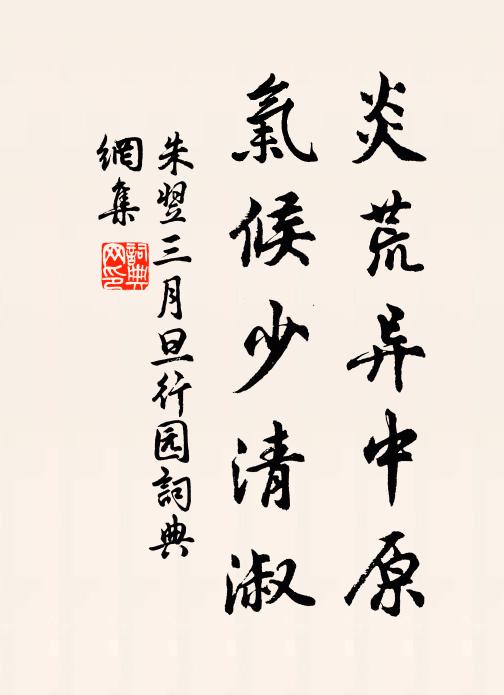 炎荒异中原
氣候少清淑
朱翌三月旦行园詞典
網集
詞典
网印